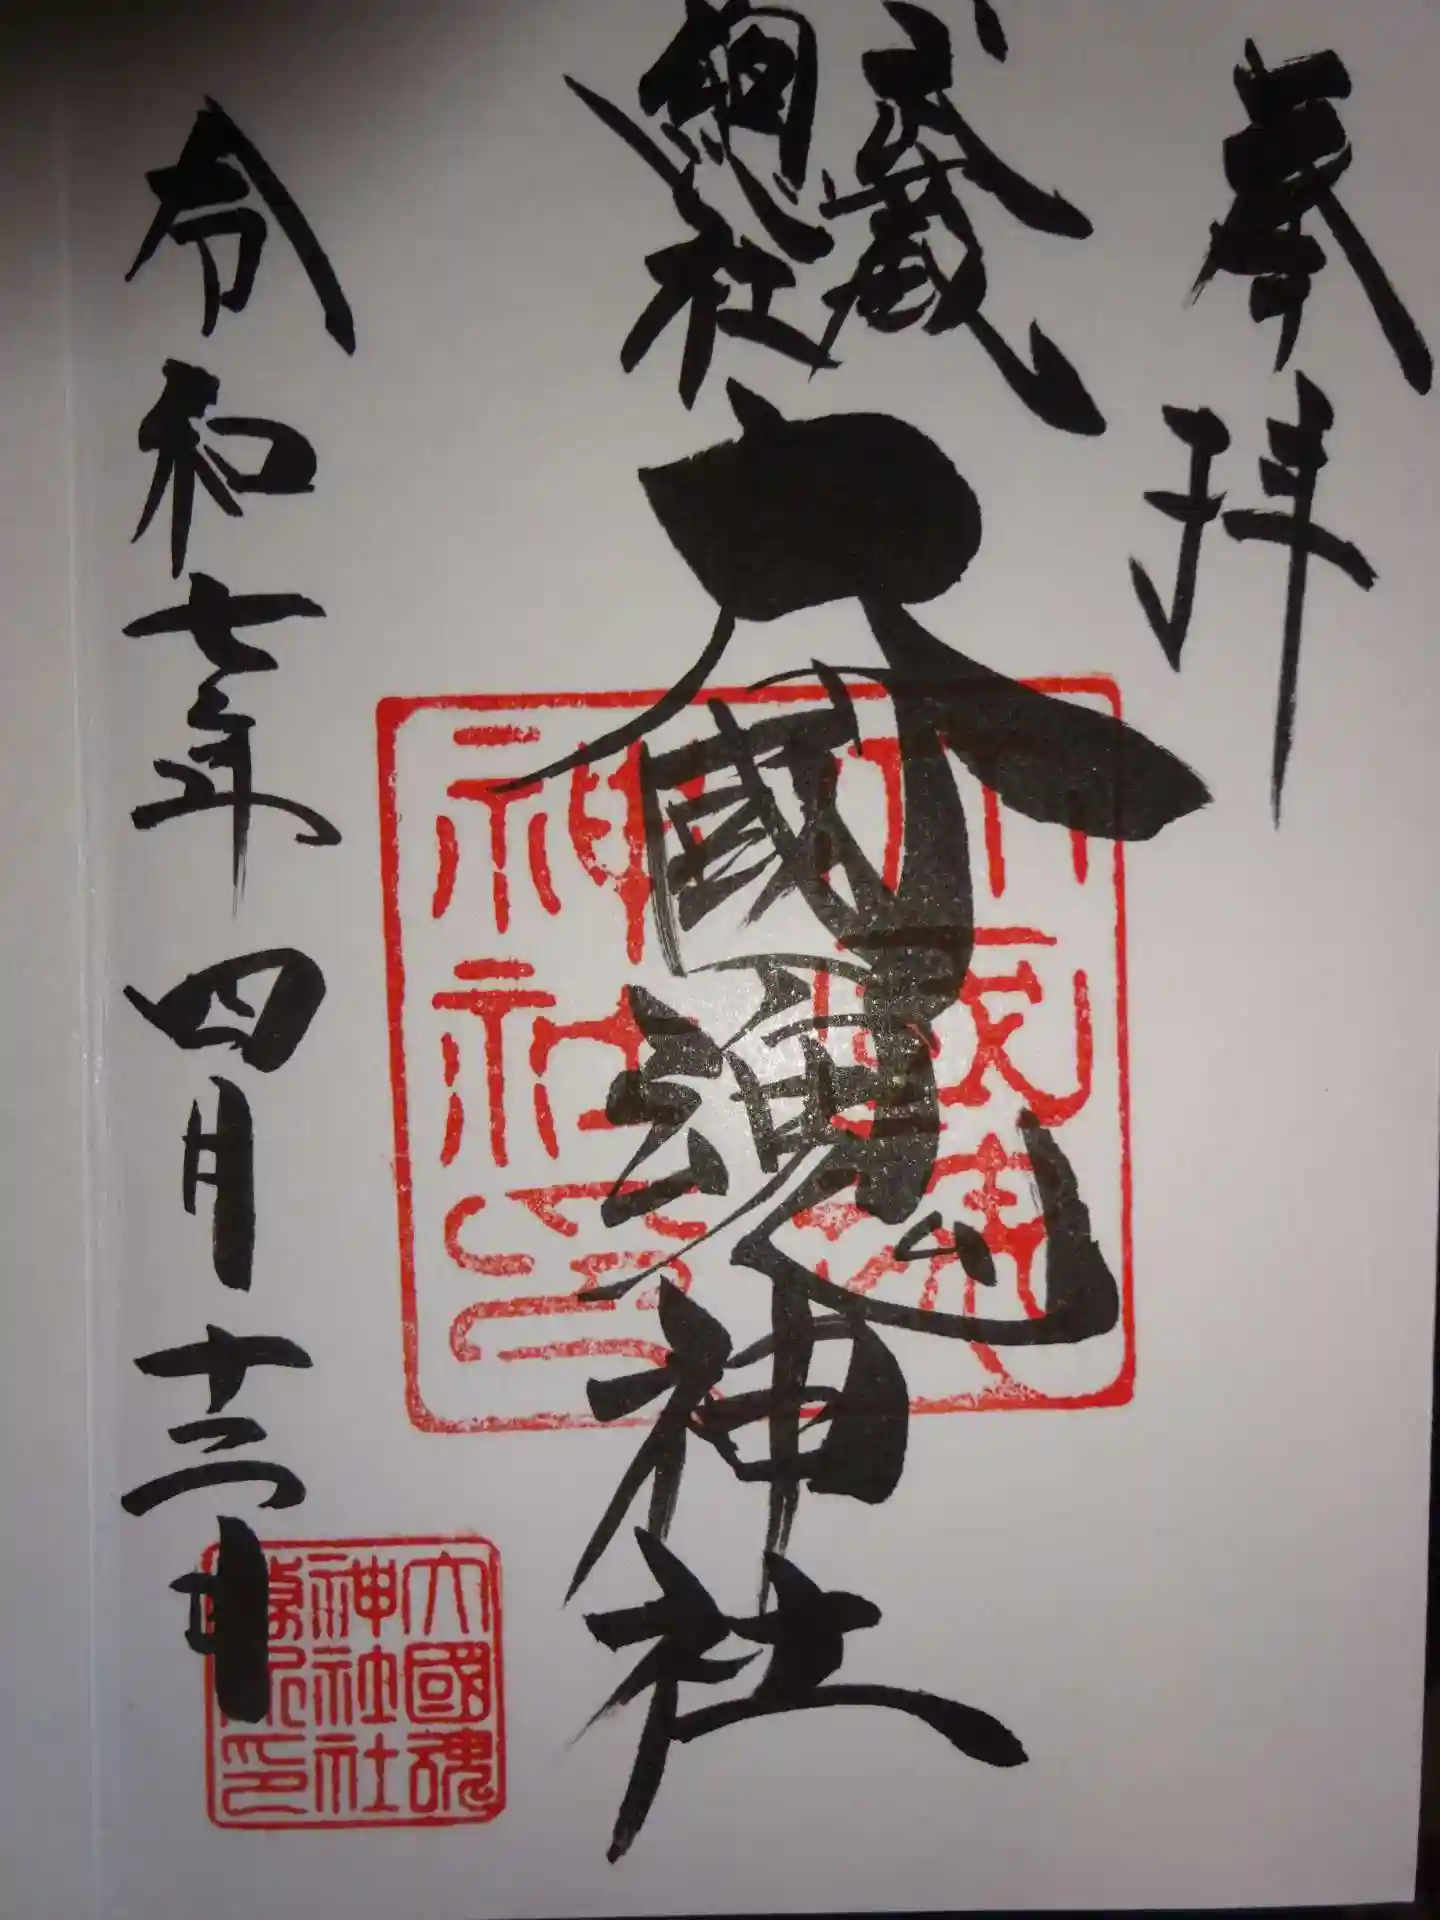 奉拝
武蔵
總社
大國魂神社
令和七年四月十三日
大國魂
神社印
大國魂
神社社
務所印